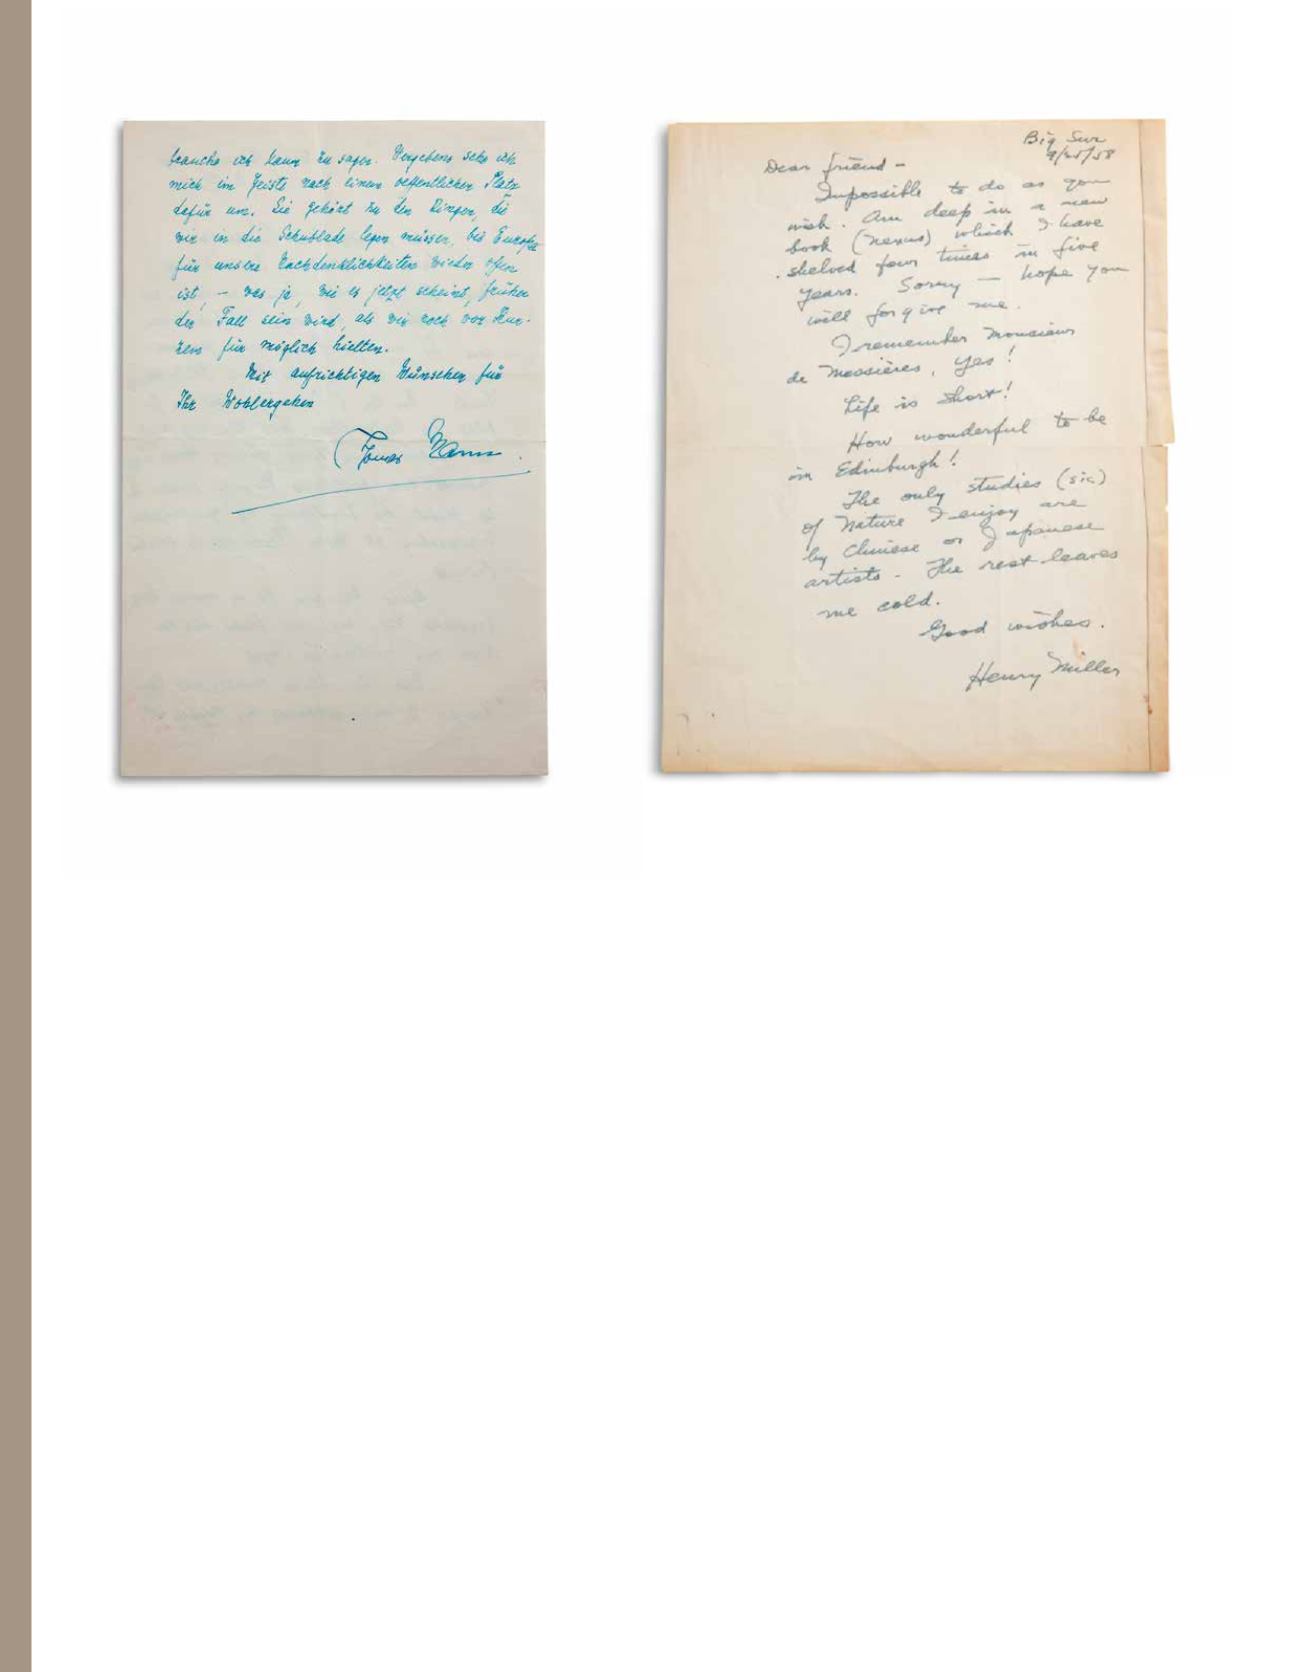 brauche ich kaum zu sagen. Vergebens sehe ich
mich im Geiste nach einem oeffentlichen Platz
dafür um. Sie gehört zu den Dingen, die
wir in die Schublade legen müssen, bis Europa
für unsere Nachdenklichkeiten wieder offen
ist, – was ja, wie es jetzt scheint, früher
der Fall sein wird, als wir noch vor Kur-
zem für möglich hielten.
Mit aufrichtigen Wünschen für
Ihr Wohlergehen
Thomas Mann.
Big Sur
9/25/58
Dear friend –
Impossible to do as you
wish. Am deep in a new
book (Nexus) which I have
shelved four times in five
years. Sorry — hope you
will forgive me.
I remember Monsieur
de Messières, yes!
Life is short!
How wonderful to be
in Edinburgh!
The only studies (sic)
of Nature I enjoy are
by Chinese or Japanese
artists. The rest leaves
me cold.
Good wishes.
Henry Miller